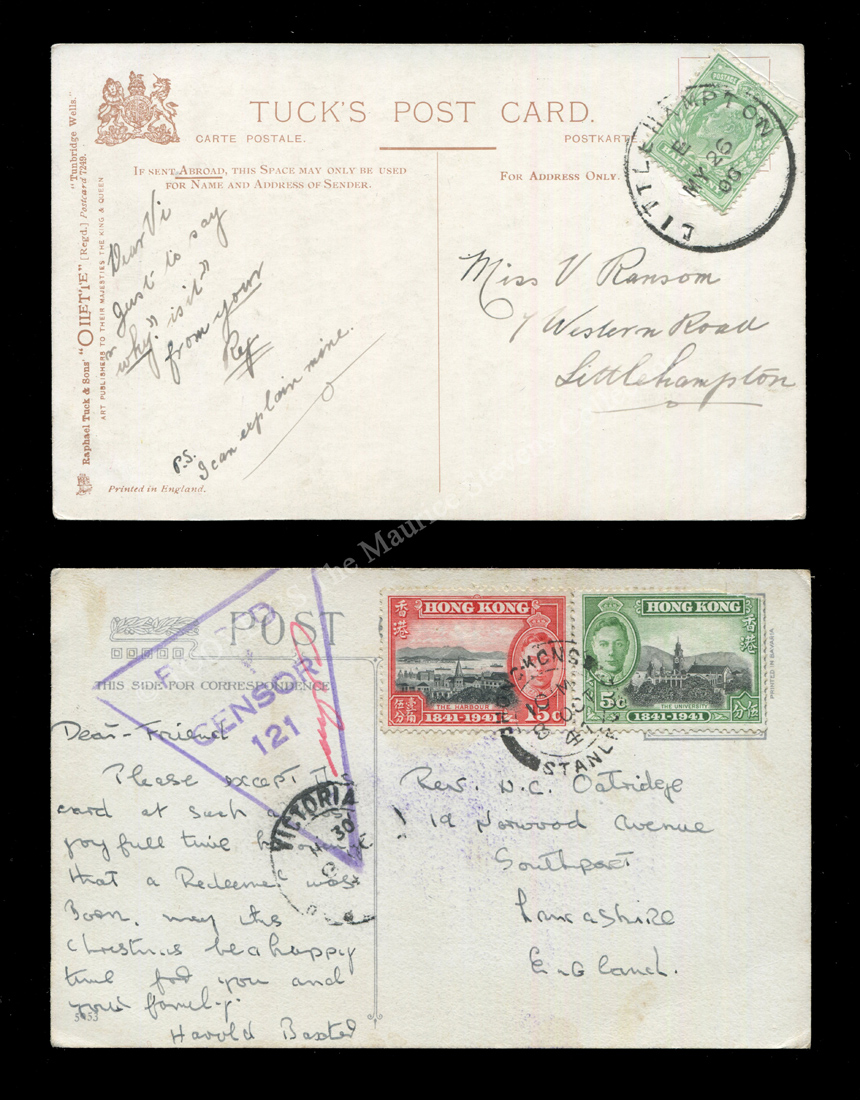 TUCK'S POST CARD.
CARTE POSTALE.
POSTKARTE
IF SENT ABROAD, THIS SPACE MAY ONLY BE USED
FOR NAME AND ADDRESS OF SENDER.
FOR ADDRESS ONLY.
LITTLEHAMPTON
E
MY 26
06
POSTAGE
Raphael Tuck & Sons' "OILETTE" [Regd.] Postcard 7249. "Tunbridge Wells."
ART PUBLISHERS TO THEIR MAJESTIES THE KING & QUEEN
Dear Vi
Just to say
"why" is it"
from your
Reg
P.S. I can explain mine.
Miss V Ransom
7 Western Road
Littlehampton
Printed in England.
The Maurice
POST
THIS SIDE FOR CORRESPONDENCE
CENSOR
121
香港 HONG KONG
THE HARBOUR
壹角伍分 1841-1941 15c
HONG KONG 香港
THE UNIVERSITY
5c 1841-1941 伍分
STANL
PRINTED IN BAVARIA
VICTORIA
30
Dear-Friend
Please except
card at such a
joyfull time
that a Redeemer was
Boen. may this
Christmas be a happy
time for you and
your family.
Harold Baxter
Rev. N.C. Oatridge
19 Norwood Avenue
Southport
Lancashire
England.